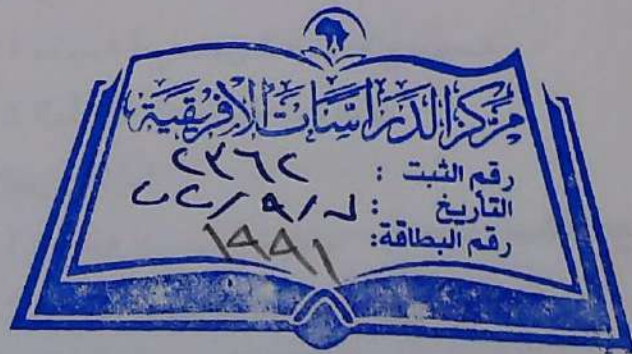 مركز الدراسات الأفريقية
رقم الثبت : ٢٣٦٢
التأريخ :
رقم البطاقة: ١٩٩١